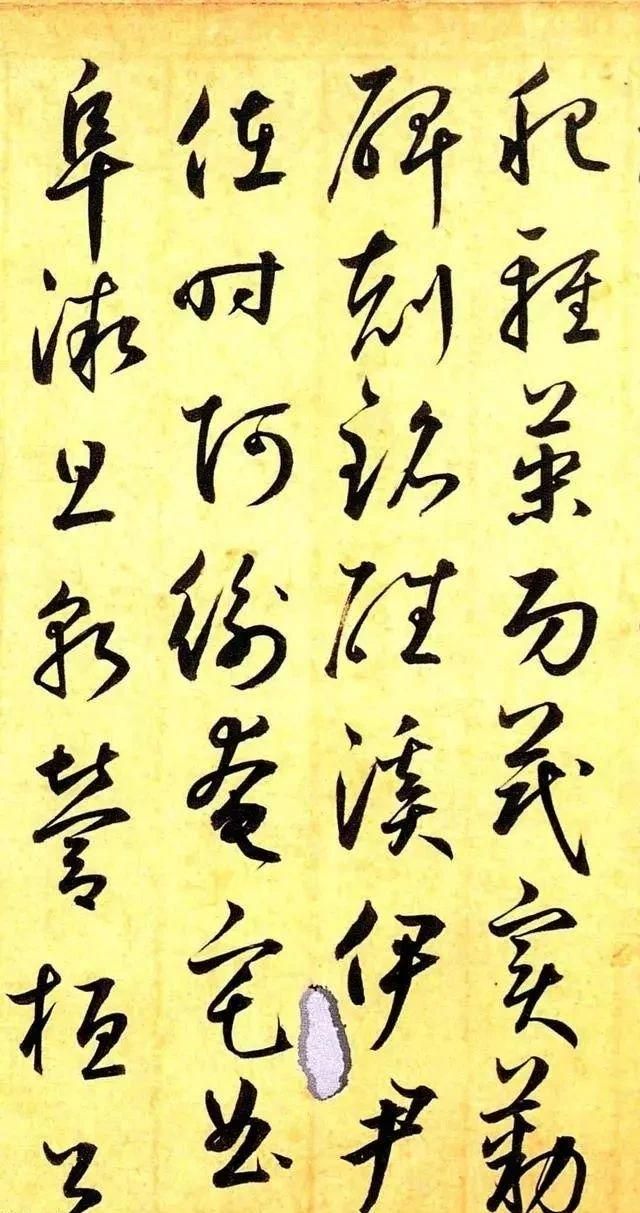 肥輕策功茂實勒
碑刻銘磻溪伊尹
佐時阿衡奄宅曲
阜微旦孰營桓公